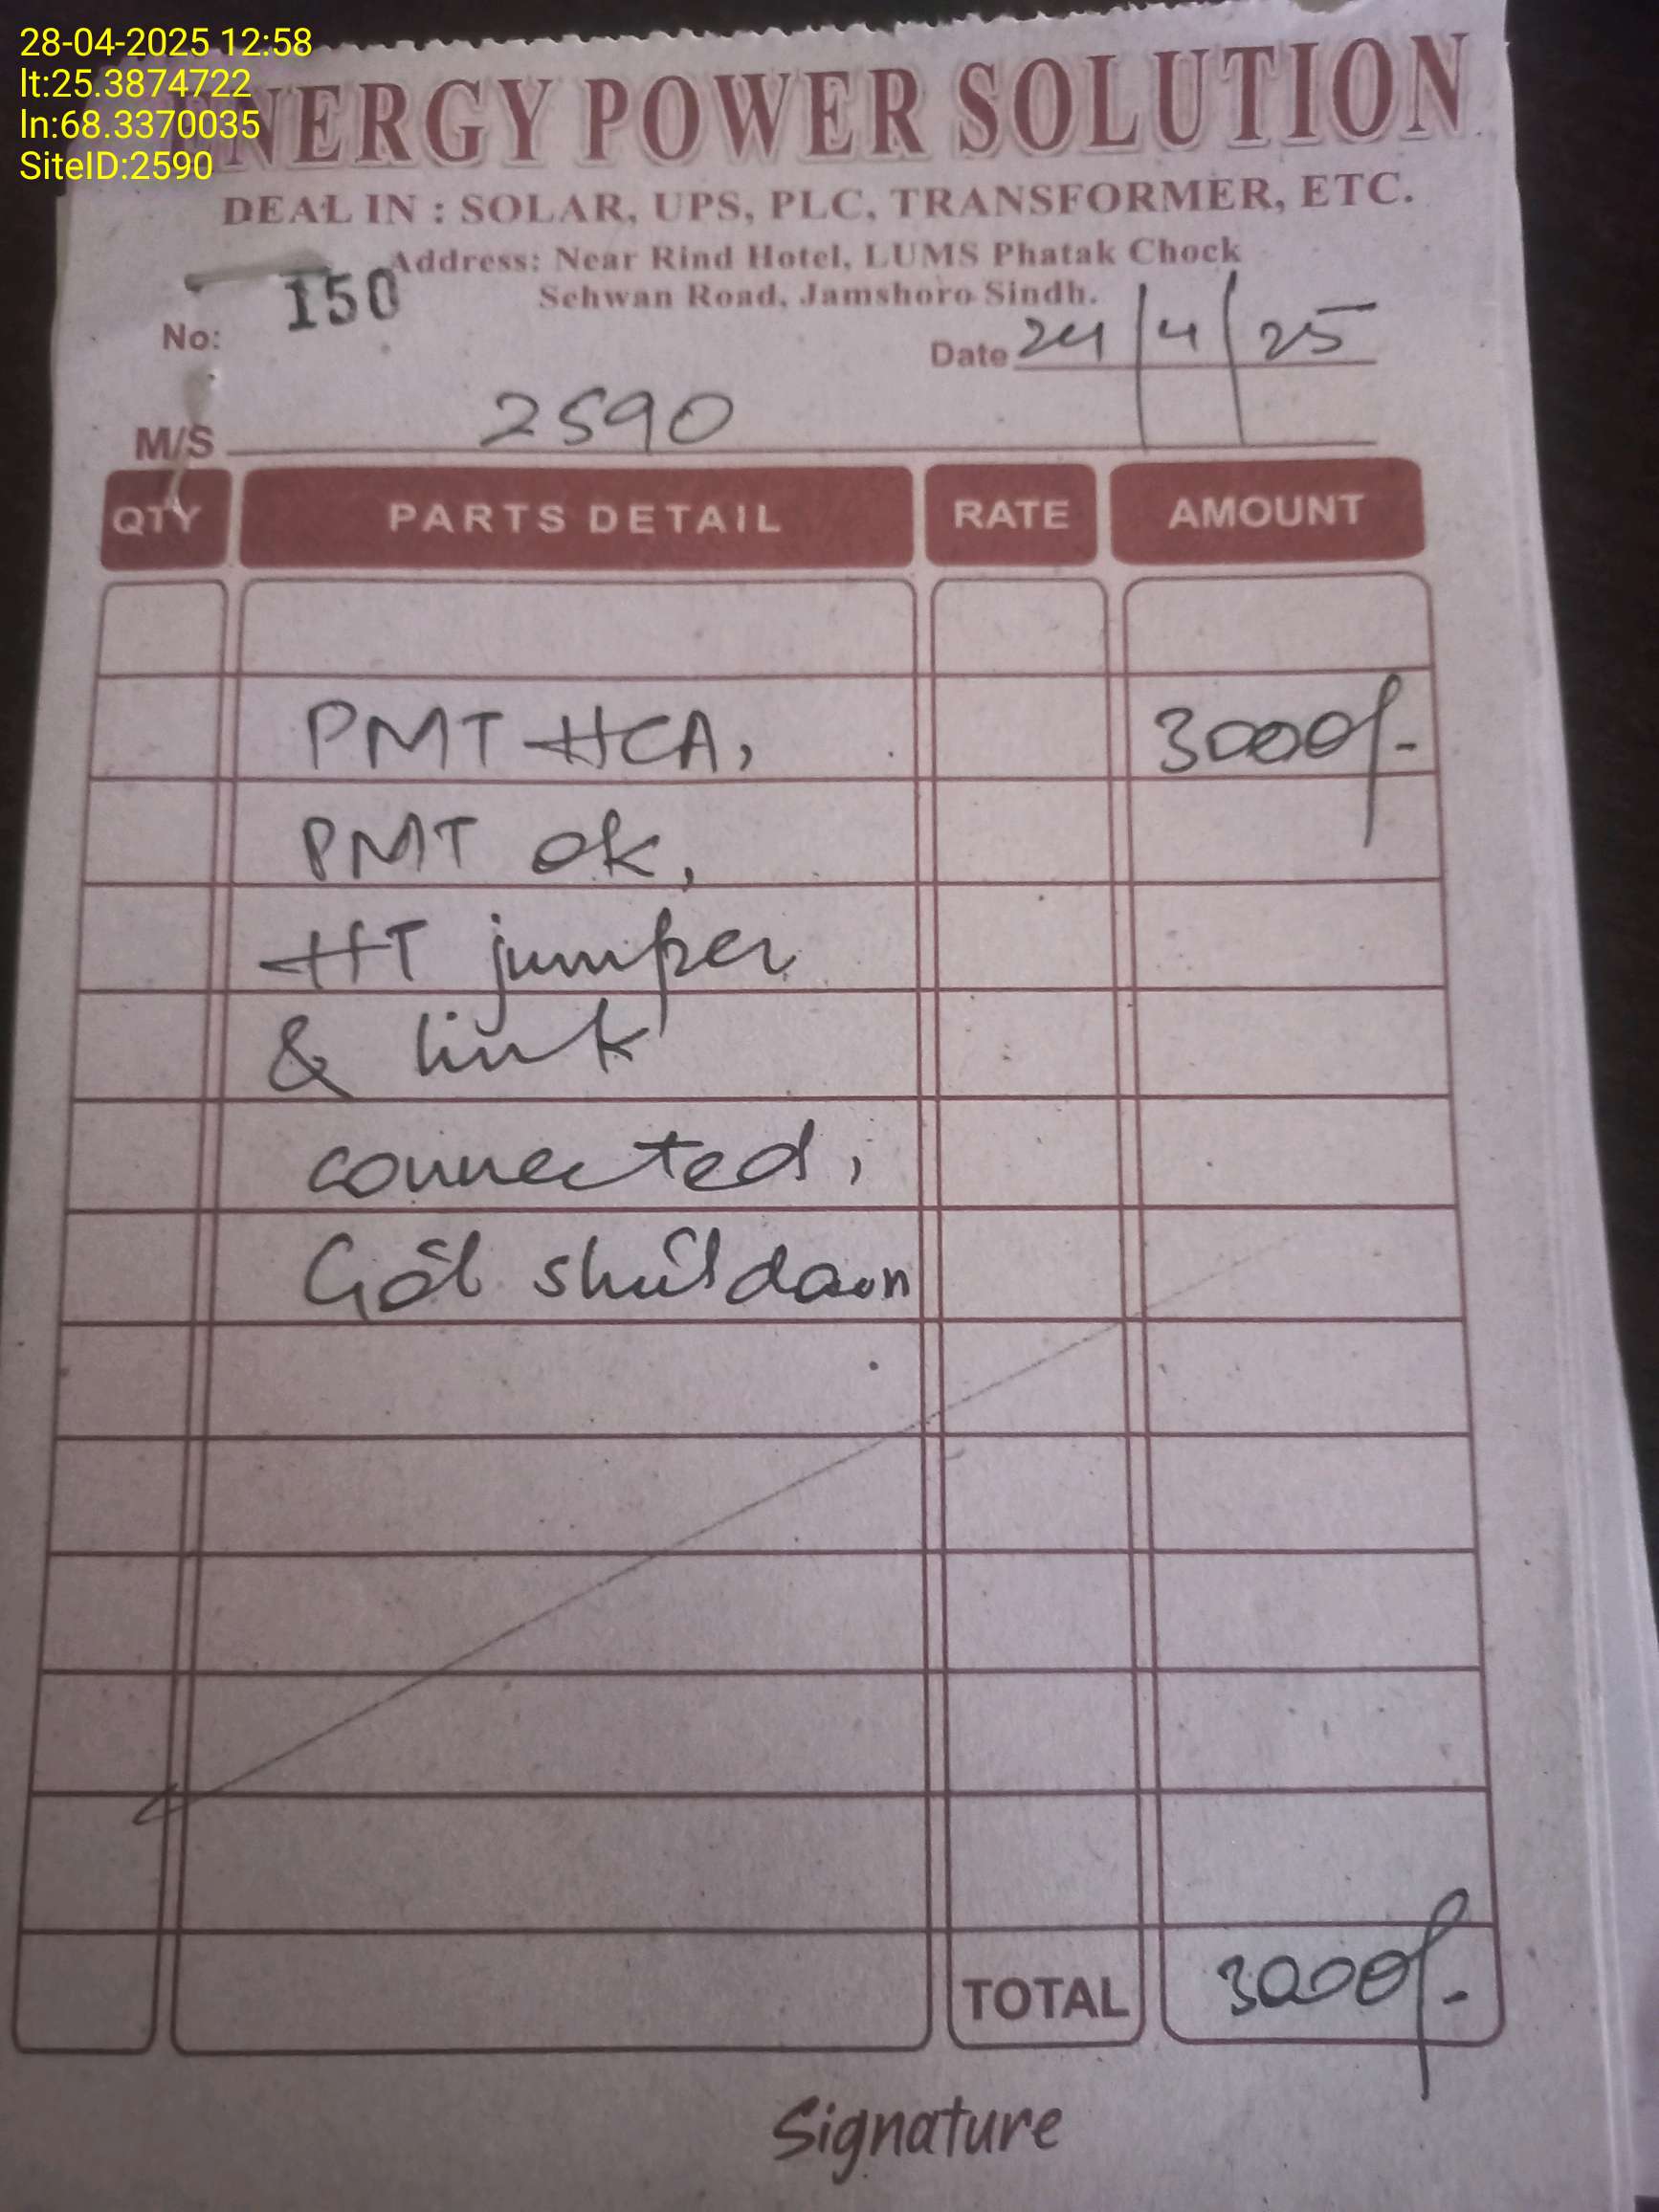 28-04-2025 12:58
lt:25.3874722
ln:68.3370035
SiteID:2590
ENERGY POWER SOLUTION
DEAL IN : SOLAR, UPS, PLC, TRANSFORMER, ETC.
Address: Near Rind Hotel, LUMS Phatak Chock
Sehwan Road, Jamshoro Sindh.
No: 150
Date 24/4/25
M/S 2590
QTY PARTS DETAIL RATE AMOUNT
PMT HCA, 3000/-
PMT ok,
HT jumper
& link
connected,
Got shutdown
TOTAL 3000/-
Signature